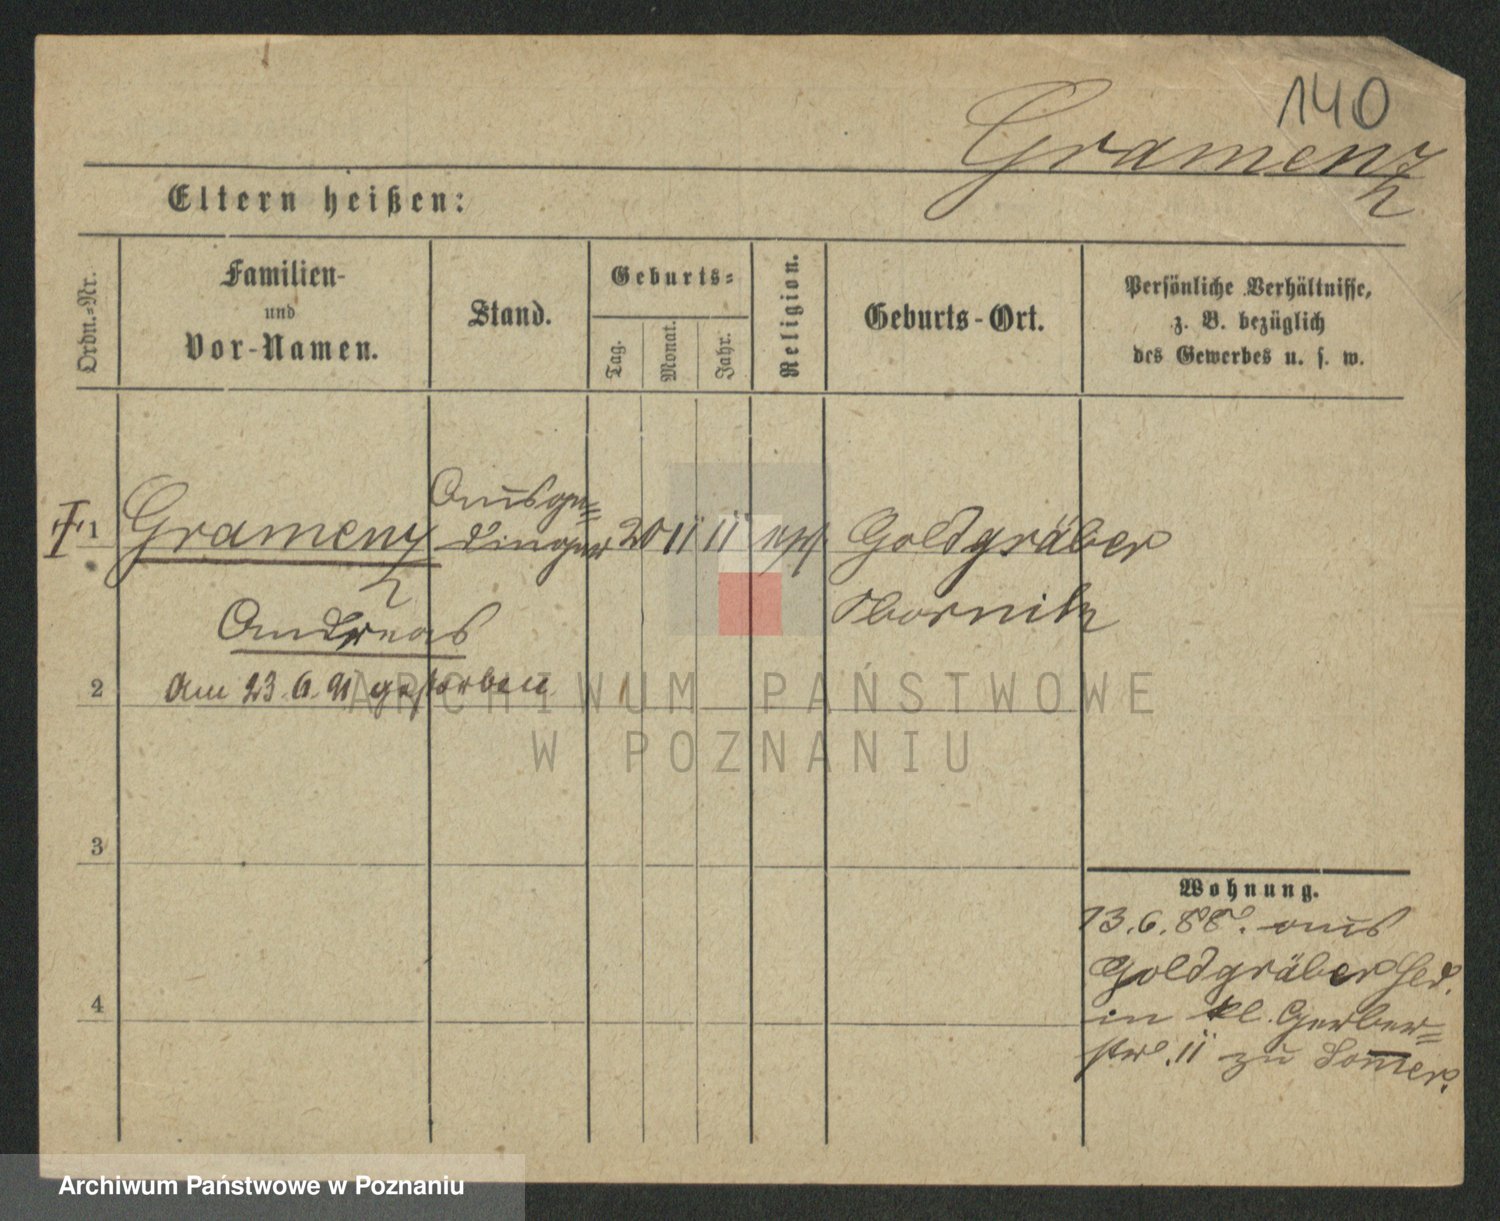 140
Gramenz
Eltern heißen:
Ordn.-Nr.
Familien-
und
Vor-Namen.
Stand.
Geburts-
Tag.
Monat.
Jahr.
Religion.
Geburts-Ort.
Persönliche Verhältnisse,
z. B. bezüglich
des Gewerbes u. s. w.
1
Gramenz
Ausge=
dinger
20 11 11
Goldgräber
Obornik
Andreas
2
Am 23.6.91 gestorben
3
4
Wohnung.
13.6.88. aus
Goldgräber
in kl. Gerber=
str. 11 zu
ARCHIWUM PAŃSTWOWE
W POZNANIU
Archiwum Państwowe w Poznaniu